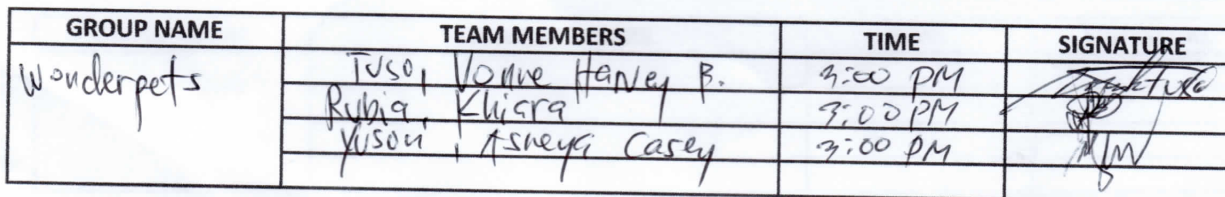 GROUP NAME TEAM MEMBERS TIME SIGNATURE
Wonderpets Tuso, Vonne Harvey B. 3:00 PM
Rubia, Khiara 3:00 PM
Yuson, Asheya Casey 3:00 PM